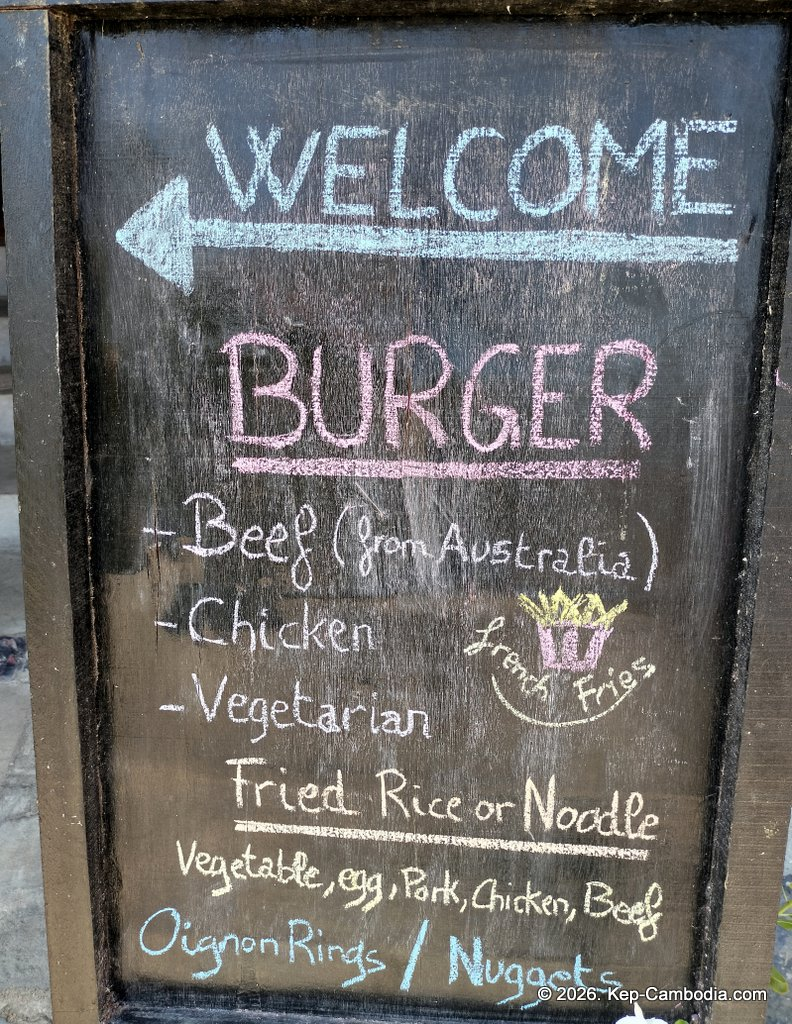 WELCOME
BURGER
- Beef (from Australia)
- Chicken
French Fries
- Vegetarian
Fried Rice or Noodle
Vegetable, egg, Pork, Chicken, Beef
Oignon Rings / Nuggets
© 2026. Kep-Cambodia.com